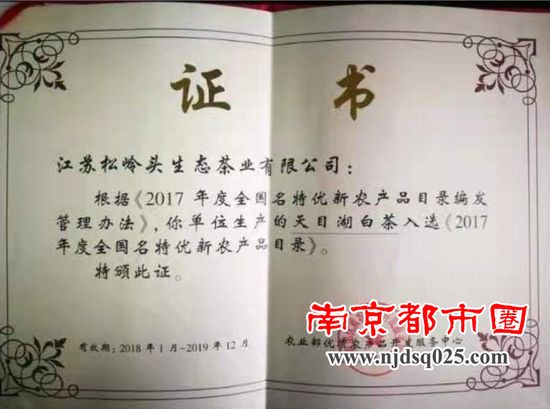 证 书
江苏松岭头生态茶业有限公司：
根据《2017 年度全国名特优新农产品目录编发
管理办法》，你单位生产的天目湖白茶入选《2017
年度全国名特优新农产品目录》。
特颁此证。
南京都市圈
有效期：2018 年 1 月-2019 年 12 月
农业部优质农产品开发服务中心
www.njdsq025.com